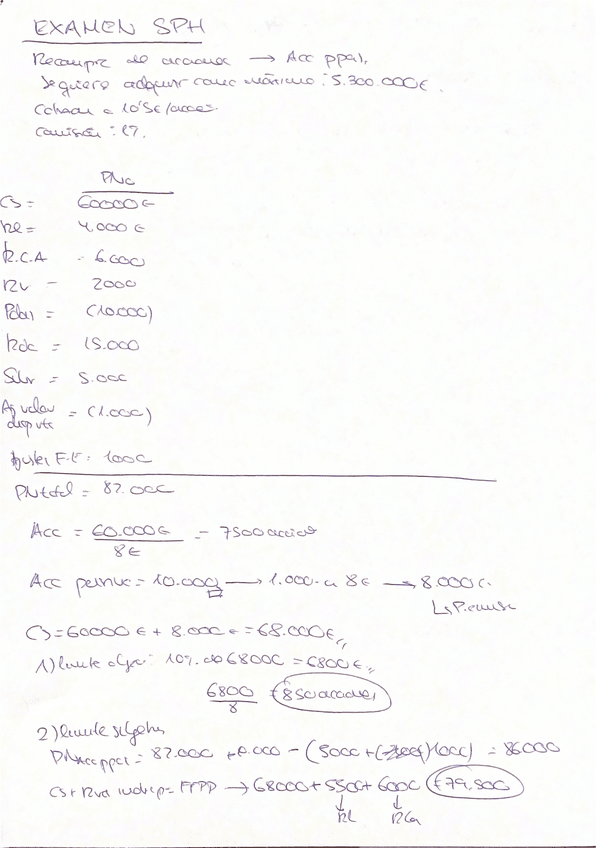 EXAMEN SPH
Recompra de acciones → Acc ppal,
Se quiere adquirir como máximo: 5.300.000€.
Cotizan a 10'5€/acción.
Comisión:
PNc
CS = 60000€
RL = 4.000€
R.C.A - 6.000
RV - 2000
= (10.000)
= 15.000
= 5.000
Aj valor = (1.000)
dispvta
Ajustes F.E: 1000
PNtotal = 82.000
Acc = 60.000€ / 8€ - 7500 acciones
Acc = 10.000 → 1.000 a 8€ → 8.000€
↳ P.emisión
CS = 60000€ + 8.000€ = 68.000€,,
1) límite 10% de 68000 = 6800€,,
6800 / 8 = 850 acciones,
2) límite
PNacc ppal = 82.000 + 8.000 - (5000 + ( ) 1000) = 86000
CS + Rva indisp = FFPP → 68000 + 5500 + 6000 = 79.500
↓ ↓
RL RCa